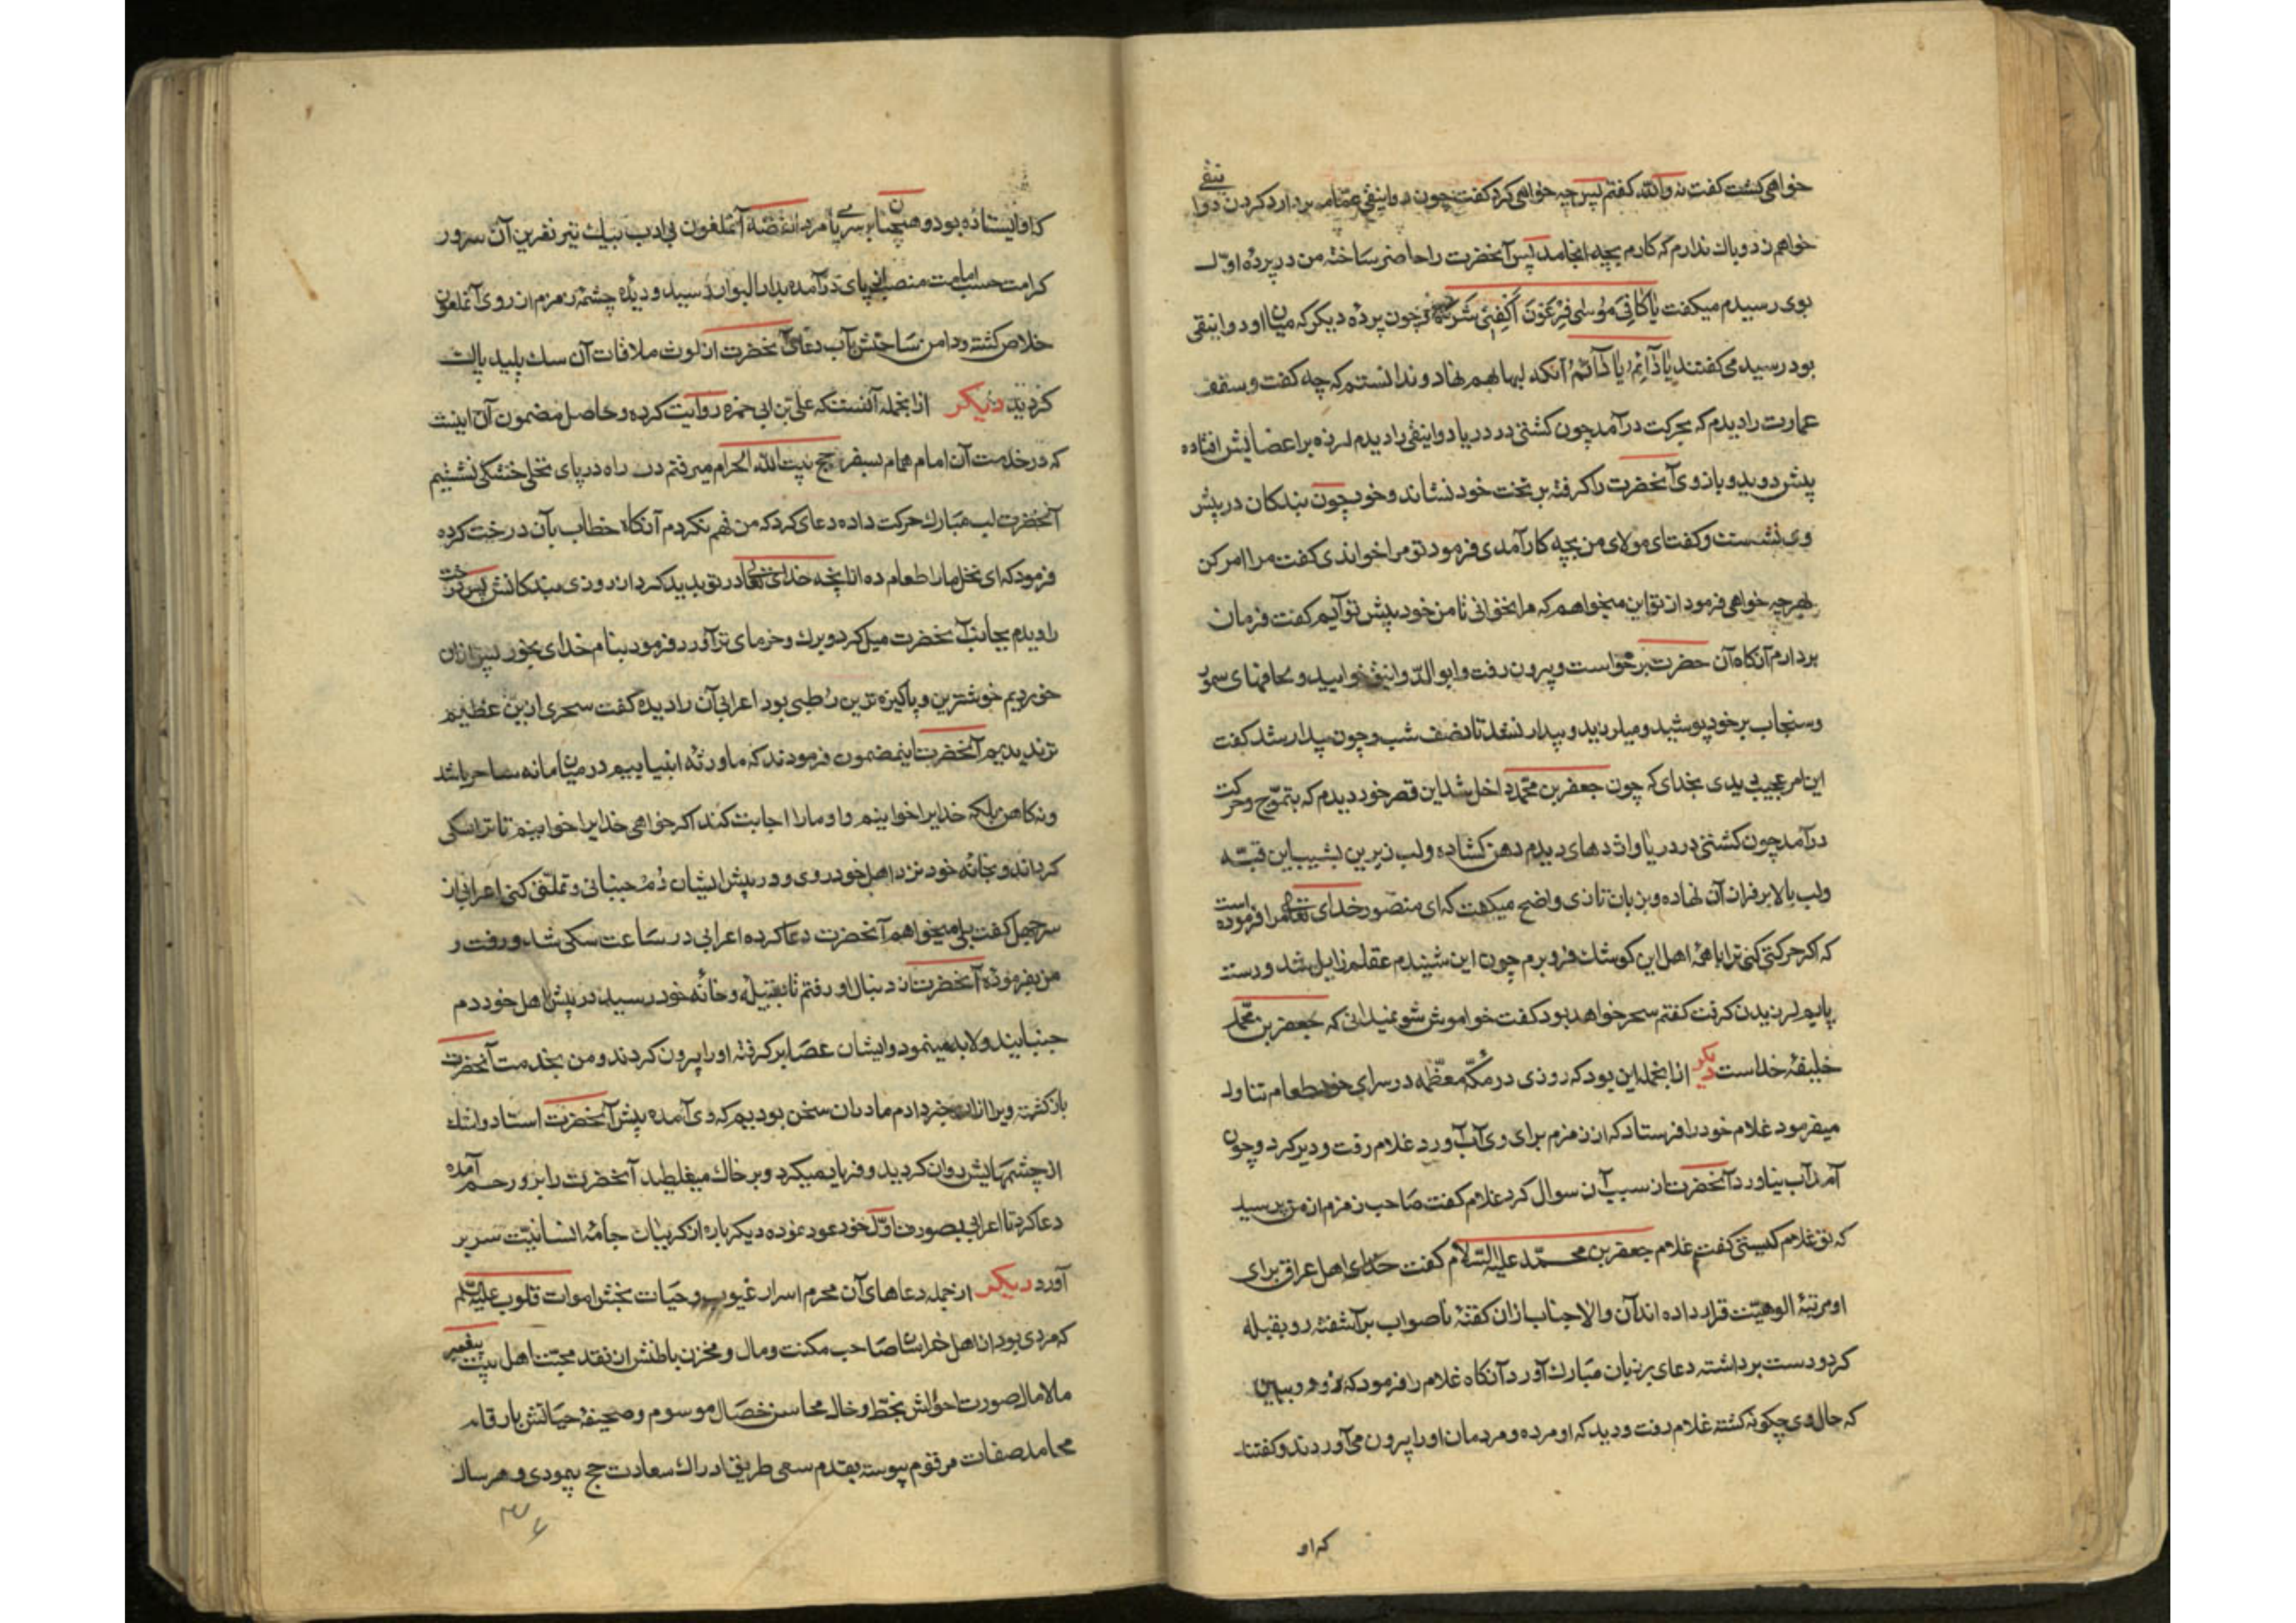 خواهی کشت گفت نه والله گفتم پس چه خواهی کرد گفت چون دوانیقی عمامه بردارد گردن دوانیقی
خواهم زد و باک ندارم که کارم بچه انجامد پس آنحضرت را حاضر ساخته من در پرده اول
بوی رسیدم میکفت یا کافِیَ مُوسٰی فِرْعَوْنَ اَکْفِنی شَرَّهُ چون پرده دیکر که میان او و دوانیقی
بود رسید می کفتند یا دٰآئِمُ یا دٰآئِمُ آنکه لبها بهم نهاد و ندانستم که چه کفت و سقف
عمارت را دیدم که بحرکت درآمد چون کشتی در دریا و دوانیقی را دیدم لرزه بر اعضایش افتاده
پیش دوید و بازوی آنحضرت را کرفته بر تخت خود نشاند و خود چون بندکان در پیش
وی نشست و کفت ای مولای من بچه کار آمدی فرمود تو مرا خواندی کفت مرا امر کن
بهر چه خواهی فرمود از تو این میخواهم که مرا نخوانی تا من خود پیش تو آیم کفت فرمان
بردارم آنکاه آن حضرت برخواست و بیرون رفت و ابو الدوانیق خوابید و لحافهای سمور
و سنجاب بر خود پوشید و میلرزید و بیدار نشد تا نصف شب و چون بیدار شد کفت
این امر عجیب دیدی بخدای که چون جعفر بن محمد داخل شد این قصر خود دیدم که بتموّج و حرکت
درآمد چون کشتی در دریا و اژدهای دیدم دهن کشاده و لب زیرین بشیب این قبّه
ولب بالا بر فراز آن نهاده و بزبان تازی واضح میکفت که ای منصور خدای تعالی مرا فرموده است
که اکر حرکتی کنی ترا با همهٔ اهل این کوشک فرو برم چون این شنیدم عقلم زایل شد و دست
پایم لرزیدن کرفت کفتم سحر خواهد بود کفت خواموش شو نمیدانی که جعفر بن محمد
خلیفهٔ خداست دیکر ازانجمله این بود که روزی در مکّهٔ معظّمه در سرای خود طعام تناول
میفرمود غلام خود را فرستاد که از زمزم برای وی آب آورد غلام رفت و دیر کرد و چون
آمد آب نیاورد آنحضرت از سبب آن سوال کرد غلام کفت صاحب زمزم از من پرسید
که تو غلام کیستی کفتم غلام جعفر بن محمّد علیه السّلام کفت خدای اهل عراق برای
او مرتبهٔ الوهیّت قرار داده اند آن والاجناب ازان کفتهٔ ناصواب برآشفته رو بقبله
کرد و دست برداشته دعای بر زبان مبارک آورد آنکاه غلام را فرمود که برو و ببین
که حال وی چکونه کشته غلام رفت و دید که او مرده و مردمان او را بیرون می آوردند و کفتند
که او
که او ایستاده بود و همچنان بسر پا مرد القصّه آنملعون بی ادب بیک تیر نفرین آن سرور
کرامت حسب امامت منصب از پای درآمده بدارالبوار رسید و دیدهٔ چشمهٔ زمزم از روی آنملعون
خلاص کشته و دامن ساحتش بآب دعای آنحضرت از لوث ملاقات آن سک پلید پاک
کردید دیکر ازانجمله آنست که علی بن ابی حمزه روایت کرده و حاصل مضمون آن اینست
که در خدمت آن امام همام بسفر حج بیت الله الحرام میرفتم در راه در پای نخلی خشکی نشستیم
آنحضرت لب مبارک حرکت داده دعای کرد که من فهم نکردم آنکاه خطاب بآن درخت کرده
فرمود که ای نخل ما را طعام ده ازانچه خدای تعالی در تو بدید کرد از روزی بندکانش پس درخت
را دیدم بجانب آنحضرت میل کرد و برک و خرمای تر آورد فرمود بنام خدای بخور پس ازان
خوردیم خوشترین و پاکیزه ترین رطبی بود اعرابی آن را دیده کفت سحری ازین عظیم
تر ندیدیم آنحضرت اینمضمون فرمودند که ما ورثهٔ انبیاییم در میان ما نه ساحر باشد
ونه کاهن بلکه خدایرا خوانیم و او ما را اجابت کند اکر خواهی خدایرا خوانیم تا ترا سکی
کرداند و بخانهٔ خود نزد اهل خود روی و در پیش ایشان دُم جنبانی و تملّق کنی اعرابی از
سر جهل کفت بلی میخواهم آنحضرت دعا کرده اعرابی در ساعت سکی شد و رفت و
من بفرمودهٔ آنحضرت از دنبال او رفتم تا بقبیله و خانهٔ خود رسید در پیش اهل خود دم
جنبانید و لابه مینمود و ایشان عصا برکرفته او را بیرون کردند و من بخدمت آنحضرت
بازکشته و ویرا ازان خبر دادم ما دران سخن بودیم که وی آمده پیش آنحضرت استاد و اشک
از چشمهایش روان کردید و فریاد میکرد و بر خاک میغلطید آنحضرت را بر او رحم آمده
دعا کرد تا اعرابی بصورت اوّل خود عود نموده دیکر باره از کریبان جامهٔ انسانیّت سر بر
آورد دیکر ازجمله دعاهای آن محرم اسرار غیوب و حیات بخش اموات قلوب علیه السّلام
که مردی بود از اهل خراسان صاحب مکنت و مال و مخزن باطنش از نقد محبّت اهل بیت پیغمبر
مالامال صورت احوالش بخطّ و خال محاسن خصال موسوم و صحیفهٔ حیاتش بارقام
محامد صفات مرقوم پیوسته بقدم سعی طریق ادراک سعادت حج پیمودی و هر سال